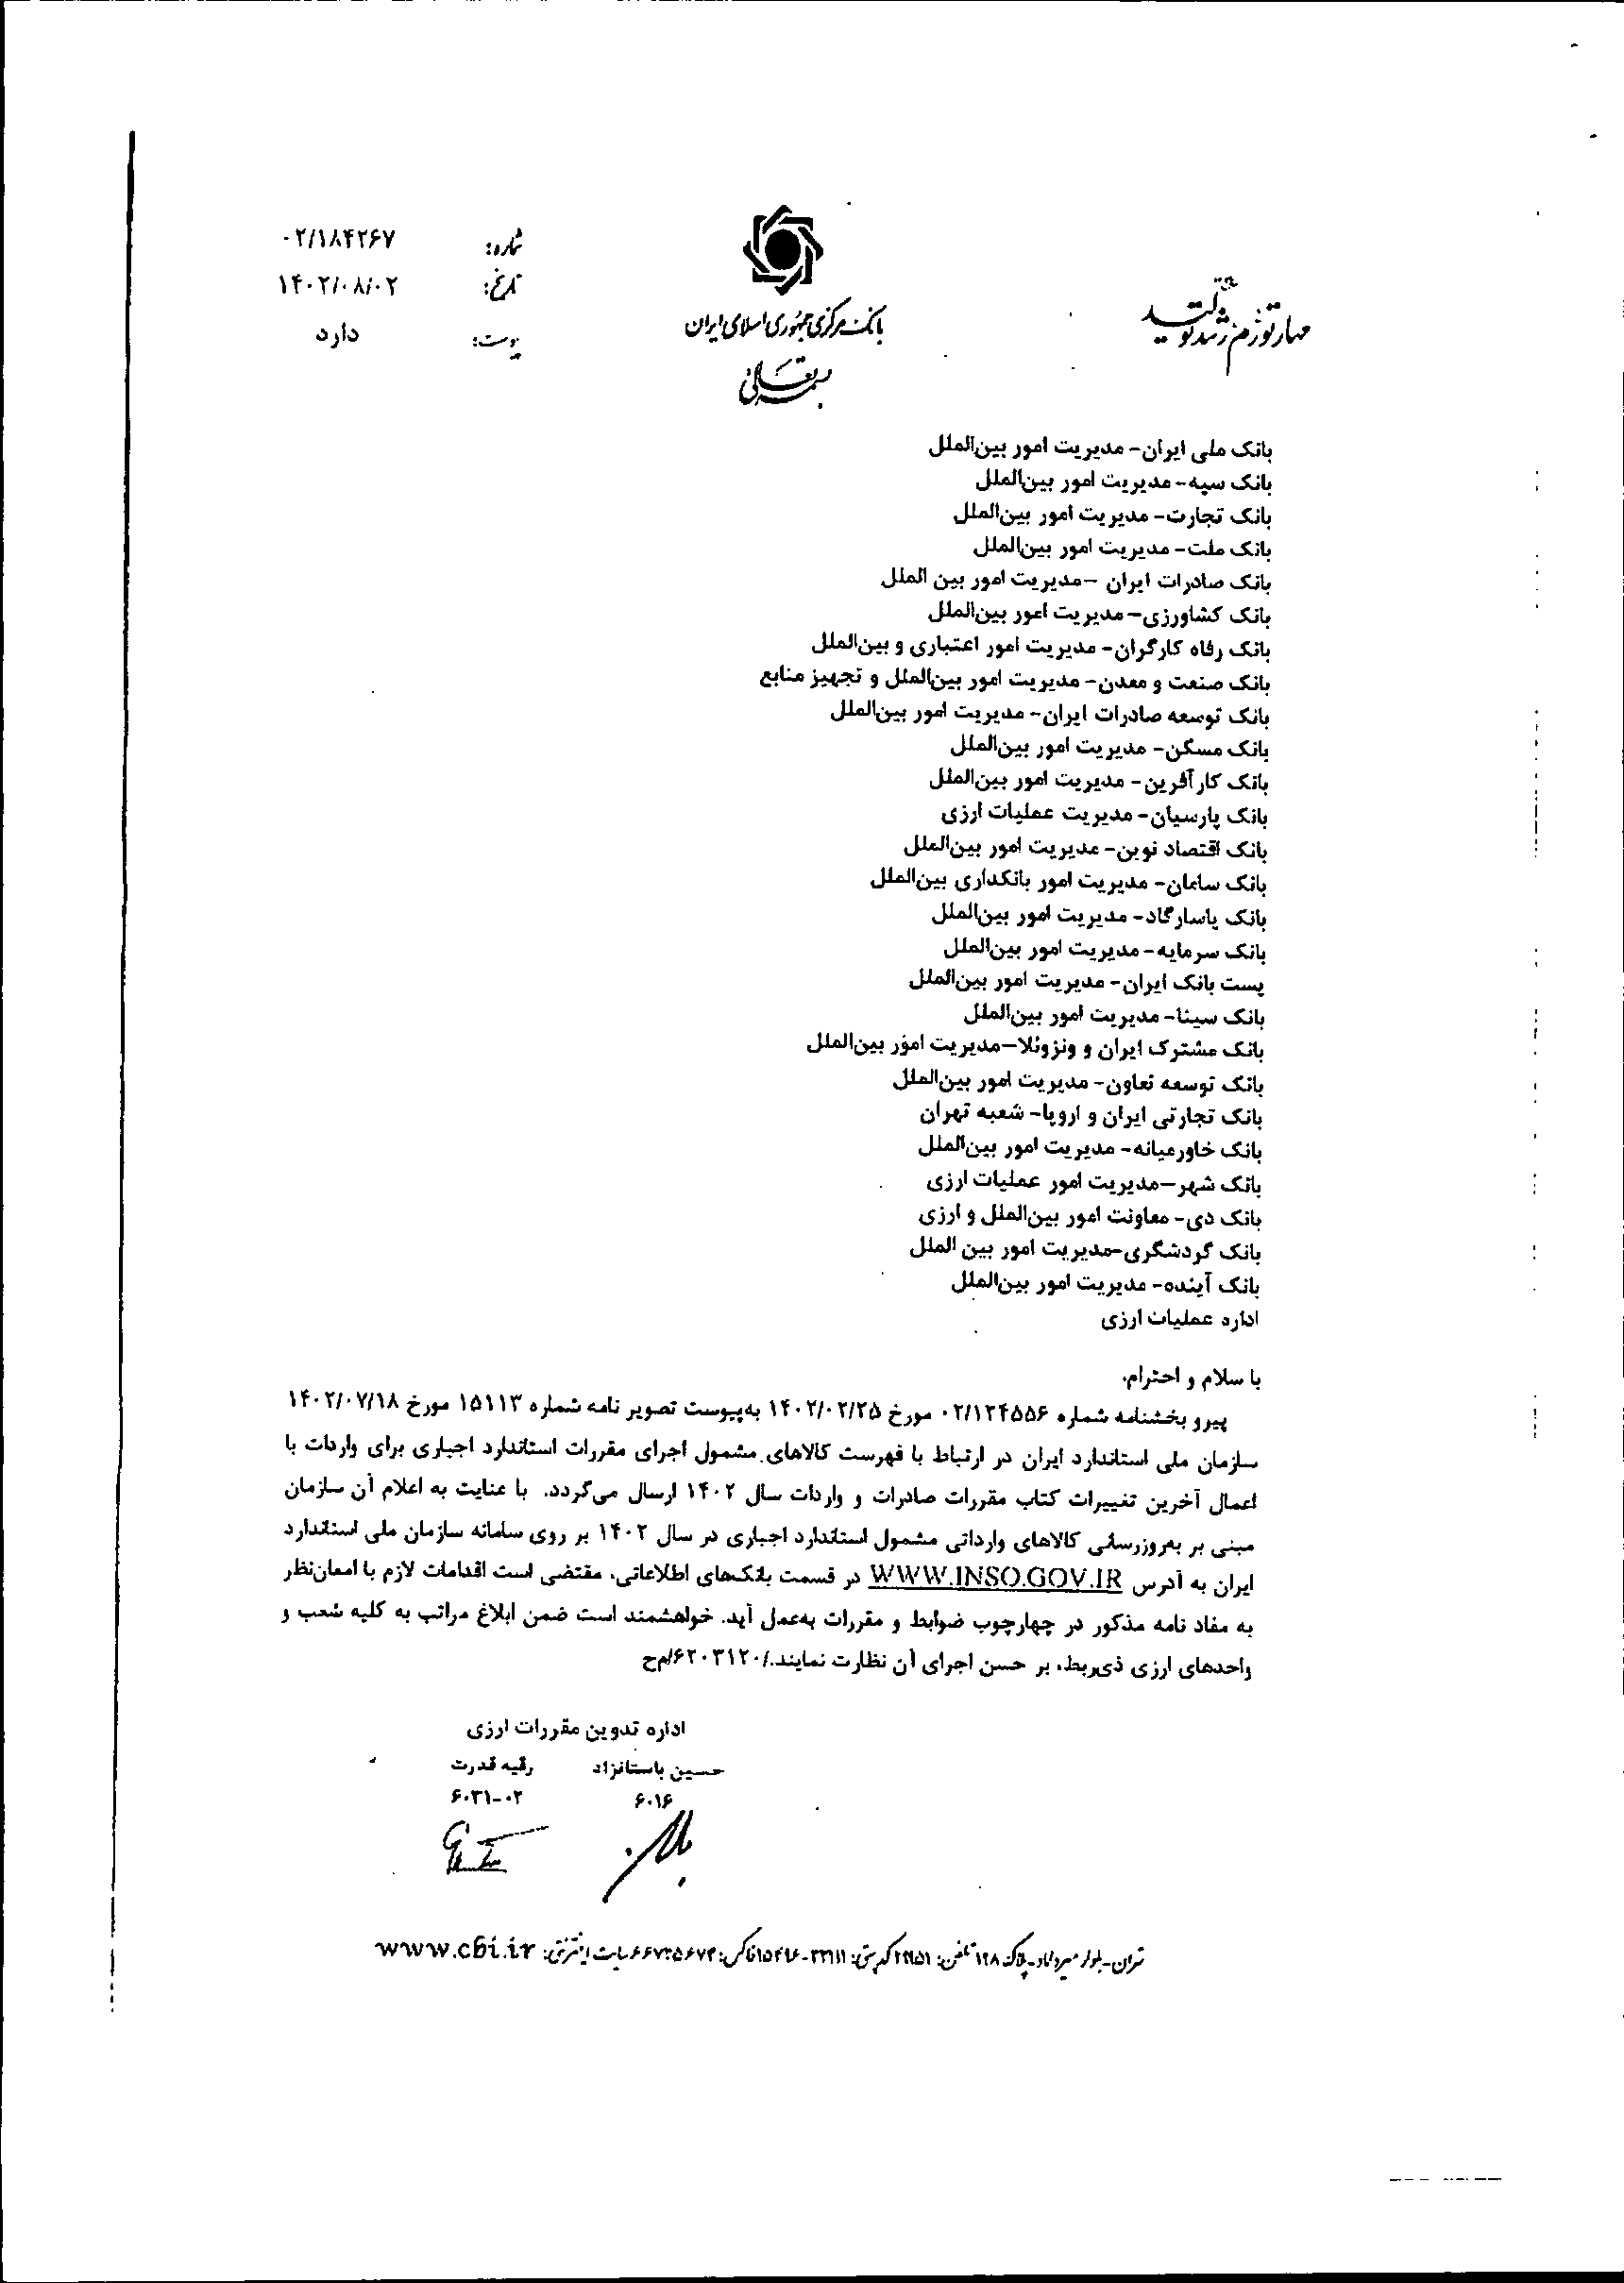 شماره: ۰۲/۱۸۴۲۶۷
تاریخ: ۱۴۰۲/۰۸/۰۲
پیوست: دارد
بانک مرکزی جمهوری اسلامی ایران
مهار تورم، رشد تولید
بسمه تعالی
بانک ملی ایران- مدیریت امور بین‌الملل
بانک سپه- مدیریت امور بین‌الملل
بانک تجارت- مدیریت امور بین‌الملل
بانک ملت- مدیریت امور بین‌الملل
بانک صادرات ایران –مدیریت امور بین الملل
بانک کشاورزی– مدیریت امور بین‌الملل
بانک رفاه کارگران- مدیریت امور اعتباری و بین‌الملل
بانک صنعت و معدن- مدیریت امور بین‌الملل و تجهیز منابع
بانک توسعه صادرات ایران- مدیریت امور بین‌الملل
بانک مسکن- مدیریت امور بین‌الملل
بانک کارآفرین- مدیریت امور بین‌الملل
بانک پارسیان- مدیریت عملیات ارزی
بانک اقتصاد نوین- مدیریت امور بین‌الملل
بانک سامان- مدیریت امور بانکداری بین‌الملل
بانک پاسارگاد- مدیریت امور بین‌الملل
بانک سرمایه- مدیریت امور بین‌الملل
پست بانک ایران- مدیریت امور بین‌الملل
بانک سینا- مدیریت امور بین‌الملل
بانک مشترک ایران و ونزوئلا–مدیریت امور بین‌الملل
بانک توسعه تعاون- مدیریت امور بین‌الملل
بانک تجارتی ایران و اروپا- شعبه تهران
بانک خاورمیانه- مدیریت امور بین‌الملل
بانک شهر–مدیریت امور عملیات ارزی
بانک دی- معاونت امور بین‌الملل و ارزی
بانک گردشگری-مدیریت امور بین الملل
بانک آینده- مدیریت امور بین‌الملل
اداره عملیات ارزی
با سلام و احترام،
پیرو بخشنامه شماره ۰۲/۱۲۴۵۵۶ مورخ ۱۴۰۲/۰۲/۲۵ به‌پیوست تصویر نامه شماره ۱۵۱۱۳ مورخ ۱۴۰۲/۰۷/۱۸
سازمان ملی استاندارد ایران در ارتباط با فهرست کالاهای مشمول اجرای مقررات استاندارد اجباری برای واردات با
اعمال آخرین تغییرات کتاب مقررات صادرات و واردات سال ۱۴۰۲ ارسال می‌گردد. با عنایت به اعلام آن سازمان
مبنی بر به‌روزرسانی کالاهای وارداتی مشمول استاندارد اجباری در سال ۱۴۰۲ بر روی سامانه سازمان ملی استاندارد
ایران به آدرس WWW.INSO.GOV.IR در قسمت بانک‌های اطلاعاتی، مقتضی است اقدامات لازم با امعان‌نظر
به مفاد نامه مذکور در چهارچوب ضوابط و مقررات به‌عمل آید. خواهشمند است ضمن ابلاغ مراتب به کلیه شعب و
واحدهای ارزی ذی‌ربط، بر حسن اجرای آن نظارت نمایند./۶۲۰۳۱۲۰/م‌ح
اداره تدوین مقررات ارزی
حسین باستانزاد رقیه قدرت
۶۰۱۶ ۶۰۳۱-۰۲
تهران-بلوار میرداماد-پلاک ۱۲۸ تلفن: ۲۹۹۵۱ کدپستی: ۳۳۱۱۱-۱۵۴۹۶ فاکس: ۶۶۷۳۵۶۷۴ سایت اینترنتی: www.cbi.ir